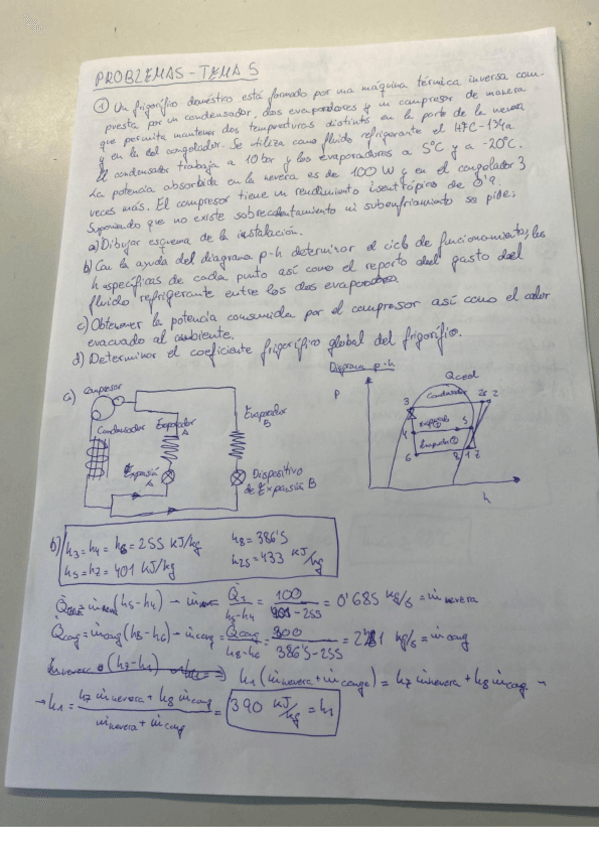 PROBLEMAS - TEMA 5
① Un frigorífico doméstico está formado por una máquina térmica inversa com-
puesta por un condensador, dos evaporadores y un compresor de manera
que permita mantener dos temperaturas distintas en la parte de la nevera
y en la del congelador. Se utiliza como fluido refrigerante el HFC-134a
El condensador trabaja a 10 bar y los evaporadores a 5°C y a -20°C.
La potencia absorbida en la nevera es de 100 W y en el congelador 3
veces más. El compresor tiene un rendimiento isentrópico de 0'9.
Suponiendo que no existe sobrecalentamiento ni subenfriamiento se pide:
a) Dibujar esquema de la instalación.
b) Con la ayuda del diagrama p-h determinar el ciclo de funcionamiento, las
h específicas de cada punto así como el reparto del gasto del
fluido refrigerante entre los dos evaporadores.
c) Obtener la potencia consumida por el compresor así como el calor
evacuado al ambiente.
d) Determinar el coeficiente frigorífico global del frigorífico.
Diagrama p-h
a) Compresor
Condensador
Evaporador
A
Evaporador
B
Expansión
A
Dispositivo
de Expansión B
P
Qced
Condensador
3
2s 2
4
5
6
8 1 7
h
b) h3 = h4 = h6 = 255 kJ/kg
h5 = h7 = 401 kJ/kg
h8 = 386'5
h2s = 433 kJ/kg
(h5-h4) → = 100 / -255 = 0'685 kg/s = ṁnevera
Q̇cong = ṁcong (h8-h6) → ṁcong = Q̇cong / h8-h6 = 300 / 386'5-255 = kg/s = ṁcong
(h7-h1) ⇒ h1 (ṁnevera + ṁcong) = h7 ṁnevera + h8 ṁcong →
→ h1 = h7 ṁnevera + h8 ṁcong / ṁnevera + ṁcong = 390 kJ/kg = h1